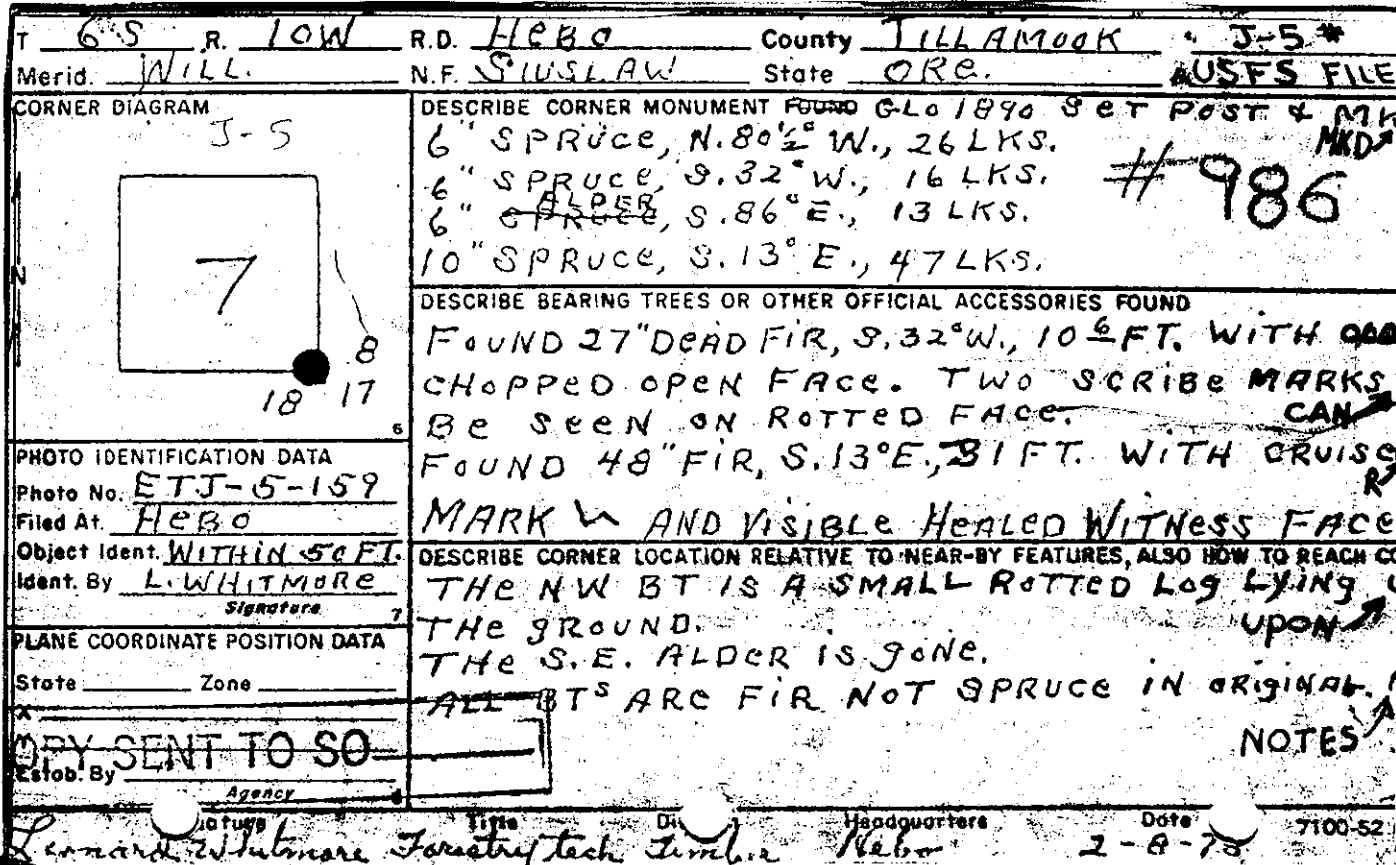 T 6S R. 10W R.D. HEBO County TILLAMOOK J-5 *
Merid. WILL. N.F. SIUSLAW State ORE. USFS FILE
CORNER DIAGRAM
J-5
7
8
18 17
6
PHOTO IDENTIFICATION DATA
Photo No. ETJ-5-159
Filed At. HEBO
Object Ident. WITHIN 50 FT.
Ident. By L. WHITMORE
Signature
7
PLANE COORDINATE POSITION DATA
State Zone
X
OPY SENT TO SO
Estab. By
Agency
DESCRIBE CORNER MONUMENT FOUND GLO 1890 SET POST & MK
MKD
6" SPRUCE, N.80½° W., 26 LKS.
6" SPRUCE, S.32° W., 16 LKS.
# 986
ALDER
6" SPRUCE, S.86° E., 13 LKS.
10" SPRUCE, S.13° E., 47 LKS.
DESCRIBE BEARING TREES OR OTHER OFFICIAL ACCESSORIES FOUND
FOUND 27" DEAD FIR, S.32°W., 10 6 FT. WITH
CHOPPED OPEN FACE. TWO SCRIBE MARKS
CAN
BE SEEN ON ROTTED FACE.
FOUND 48" FIR, S.13°E., 31 FT. WITH CRUISE
R
MARK AND VISIBLE HEALED WITNESS FACE
DESCRIBE CORNER LOCATION RELATIVE TO NEAR-BY FEATURES, ALSO HOW TO REACH CO
THE NW BT IS A SMALL ROTTED LOG LYING
UPON
THE GROUND.
THE S.E. ALDER IS GONE.
ALL BTS ARE FIR NOT SPRUCE IN ORIGINAL.
NOTES
Title Headquarters Date 7100-52
Lennard Whitmore Forestry tech Timber Hebo 2-8-75